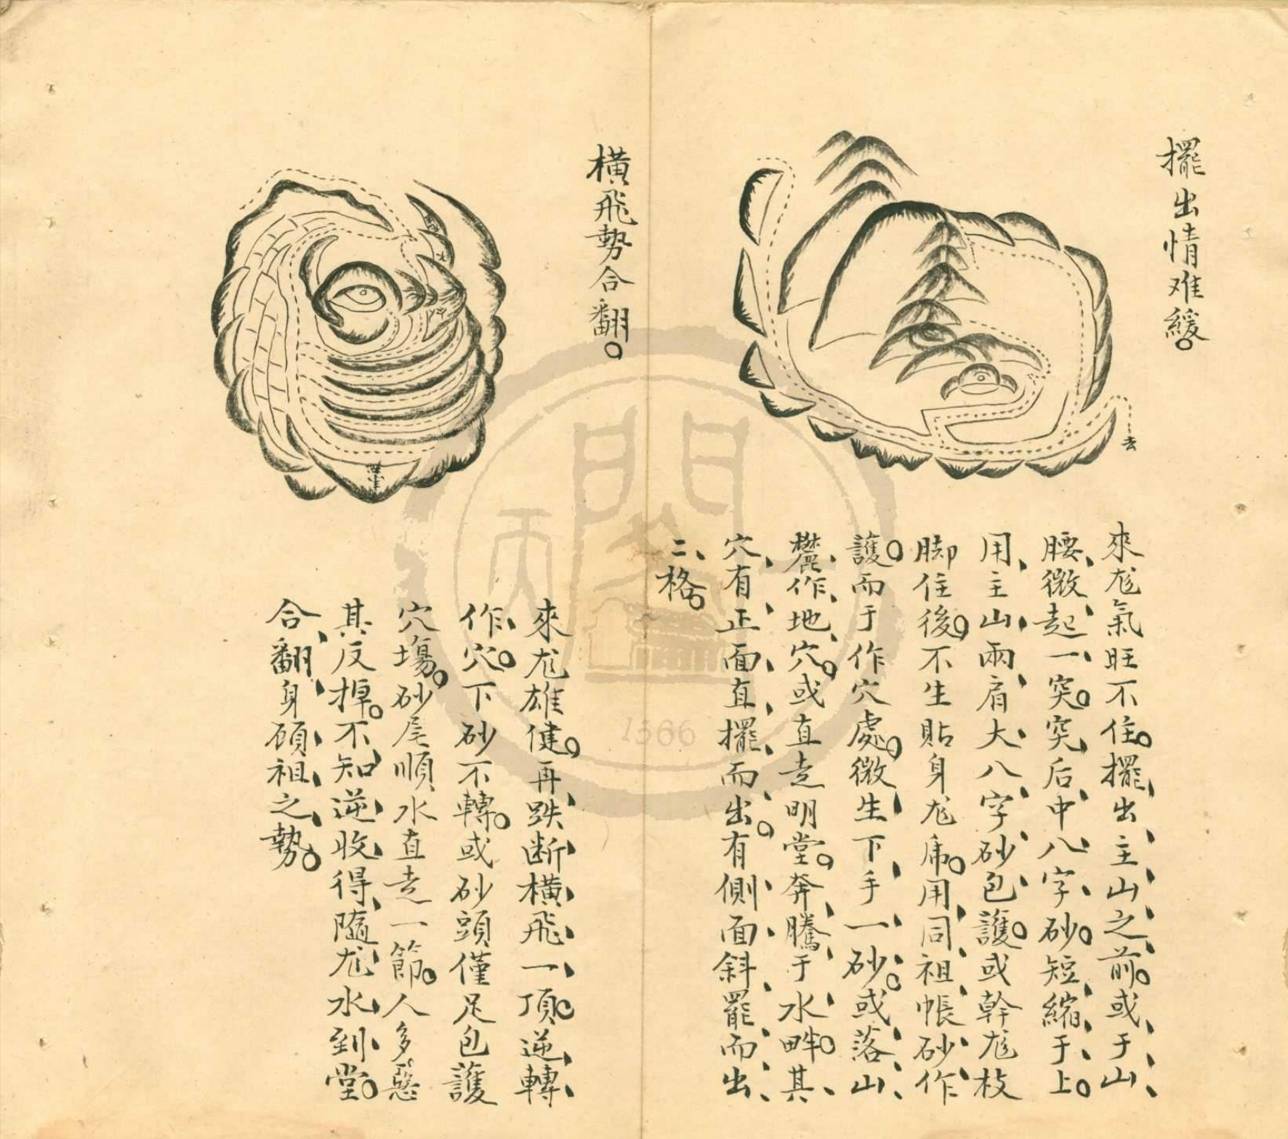 擺出情难緩。
來尨氣旺不住。擺出主山之前。或于山
腰微起一突。突后中八字砂。短縮于上。
用主山兩肩大八字砂包護。或幹尨枝
脚住後。不生貼身尨虎。用同祖帳砂作
護。而于作穴處。微生下手一砂。或落山
麓作地穴。或直走明堂。奔騰于水畔。其
穴有正面直擺而出。有側面斜罷而出
二格。
去
橫飛勢合翻。
來尨雄健。再跌断橫飛一頂。逆轉
作穴。下砂不轉。或砂頭僅足包護
穴塲。砂尾順水直走一節。人多惡
其反掉。不知逆收得隨尨水到堂。
合翻身顧祖之勢。
1366